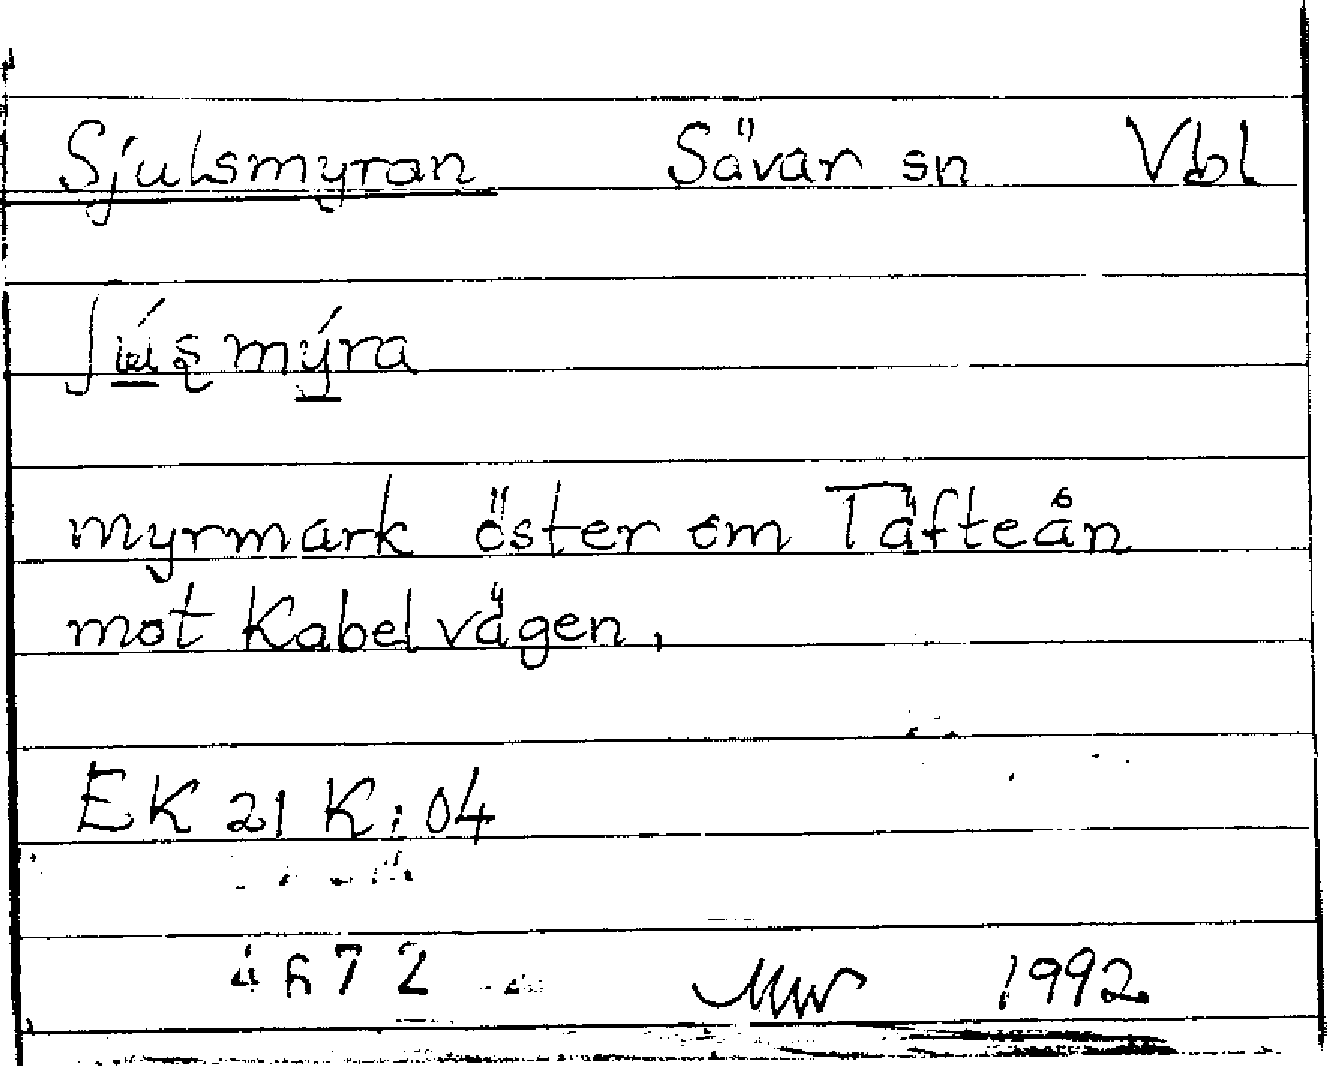 Sjulsmyran Sävar sn Vbl
ʃʉ́ṣmýra
myrmark öster om Täfteån
mot Kabelvägen,
EK 21 K: 04
1992